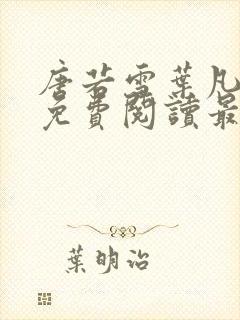 唐若雪葉凡
免費閱讀最
葉明治